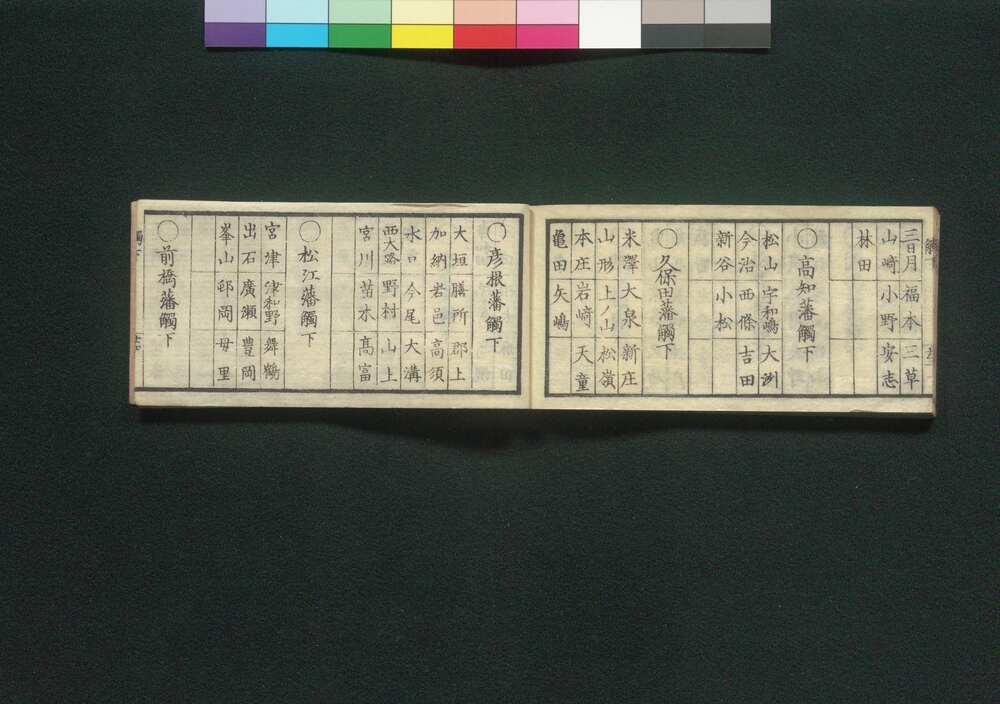 三日月 福本 三草
山﨑 小野 安志
林田
〇高知藩觸下
松山 宇和嶋 大洲
今治 西條 吉田
新谷 小松
〇久保田藩觸下
米澤 大泉 新庄
山形 上ノ山 松嶺
本庄 岩﨑 天童
亀田 矢嶋
〇彦根藩觸下
大垣 膳所 郡上
加納 岩邑 高須
水口 今尾 大溝
西大路 野村 山上
宮川 苗木 髙富
〇松江藩觸下
宮津 津和野 舞鶴
出石 廣瀬 豊岡
峯山 邨岡 母里
〇前橋藩觸下